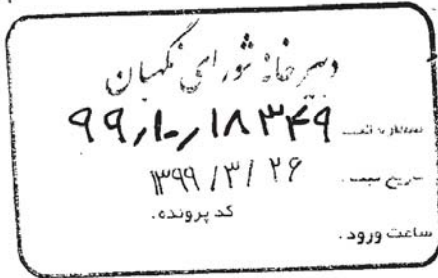 دبیرخانه شورای نگهبان
شماره ثبت: ۹۹/۱۰۱/۱۸۳۴۹
تاریخ ثبت: ۱۳۹۹/۳/۲۶
کد پرونده:
ساعت ورود: